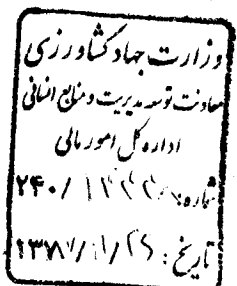 وزارت جهاد کشاورزی
معاونت توسعه مدیریت و منابع انسانی
اداره کل امور مالی
شماره: ۲۴۰/
تاریخ: ۱۳۸